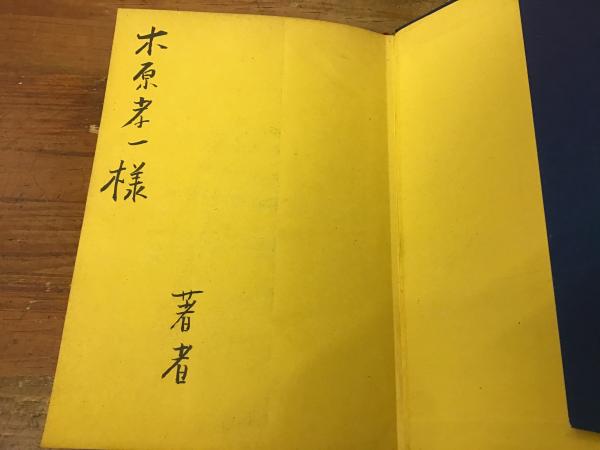 木原孝一様
著者